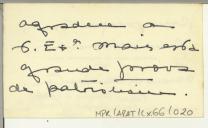 agradece a
S. Ex.ª mais esta
grande prova
de patriotismo.
MPR/ARAT/Cx66/020